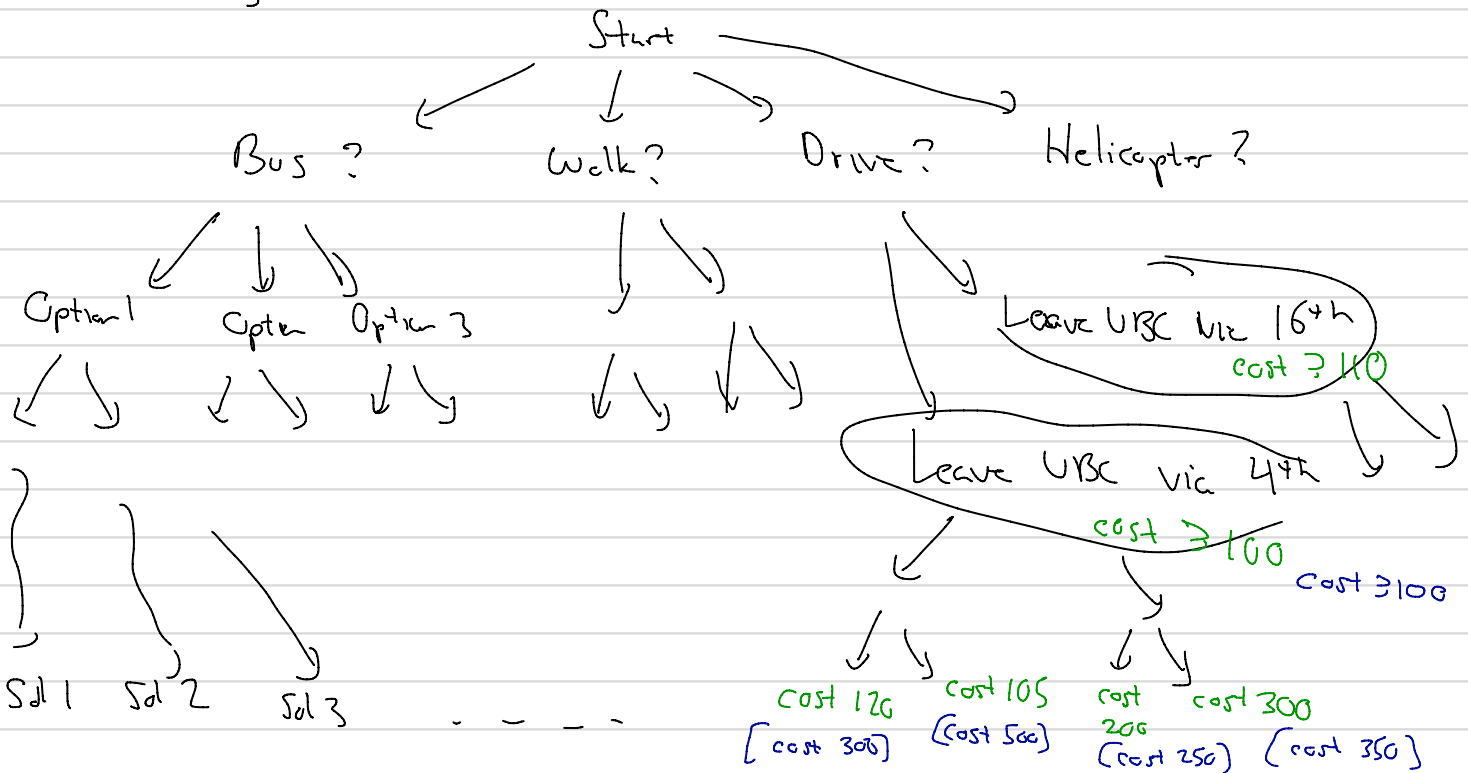 Start
Bus ?
Walk?
Drive?
Helicopter ?
Option 1
Option
Option 3
Leave UBC via 16th
cost ≥ 110
Leave UBC via 4th
cost ≥ 100
cost ≥ 100
Sol 1
Sol 2
Sol 3
cost 120
cost 105
cost 200
cost 300
[cost 300]
[cost 500]
[cost 250]
[cost 350]